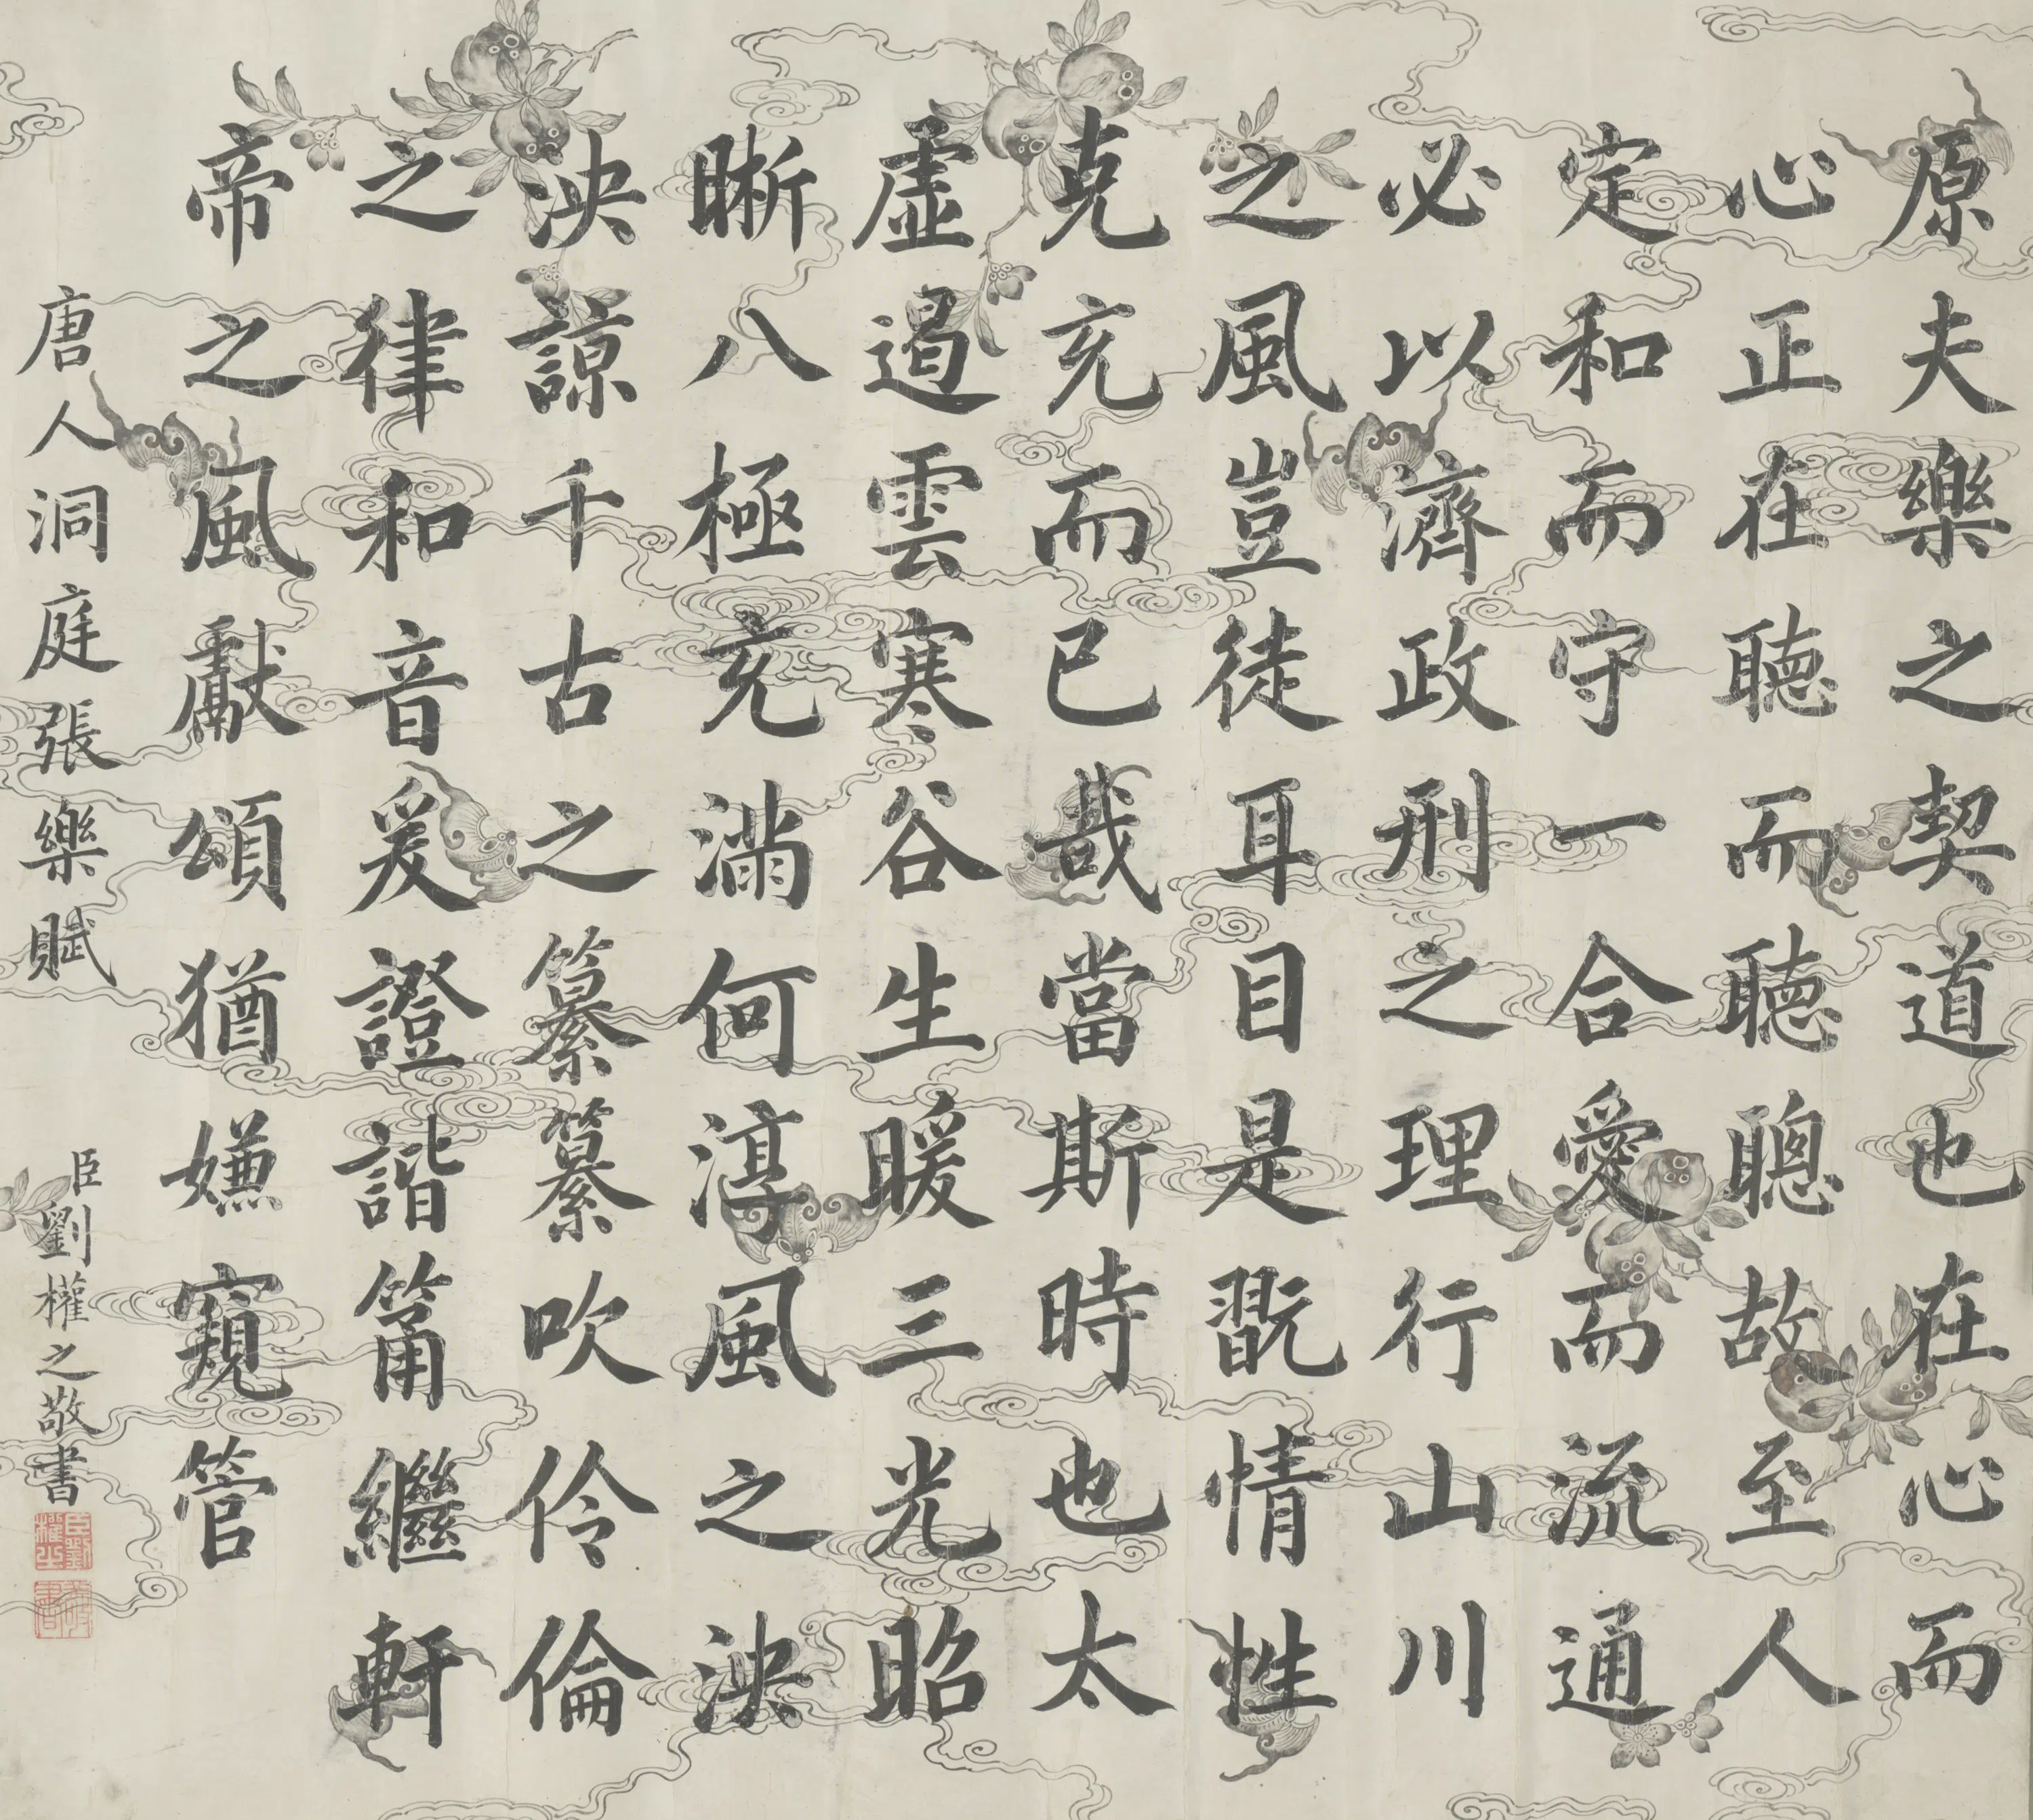 原夫樂之契道也在心而
心正在聽而聽聰故至人
定和而守一合愛而流通
必以濟政刑之理行山川
之風豈徒耳目是翫情性
克充而已哉當斯時也太
虛遏雲寒谷生暖三光昭
晣八極充滿何淳風之泱
泱諒千古之纂纂吹伶倫
之律和音爰證諧箾繼軒
帝之風獻頌猶嫌窺管
唐人洞庭張樂賦
臣劉權之敬書
臣劉權之